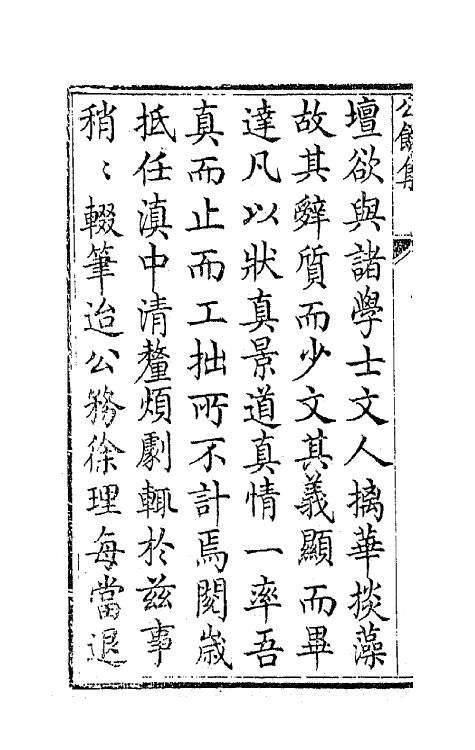 公餘集
壇欲與諸學士文人摛華掞藻
故其辤質而少文其義顯而畢
達凡以狀真景道真情一率吾
真而止而工拙所不計焉閱歲
抵任滇中清釐煩劇輒於兹事
稍〻輟筆迨公務徐理每當退